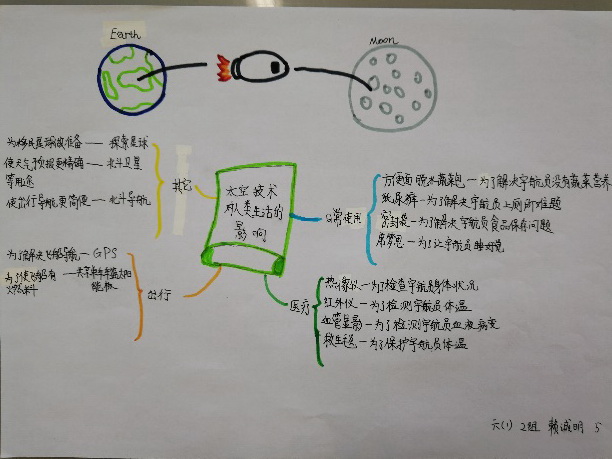 Earth
Moon
太空技术
对人类生活的
影响
其它
探索星球
使天气预报更精确——北斗卫星
等用途
使出行导航更简便——北斗导航
日常使用
方便面脱水蔬菜包—为了解决宇航员没有蔬菜营养
纸尿裤—为了解决宇航员上厕所难题
密封袋—为了解决宇航员食品保存问题
席梦思—为了让宇航员睡好觉
出行
为了解决飞船导航—GPS
医疗
热像仪—为了检查宇航员身体状况
红外仪—为了检测宇航员体温
血管显影—为了检测宇航员血液病变
救生毯—为了保护宇航员体温
六(1) 2组 赖诚明 5